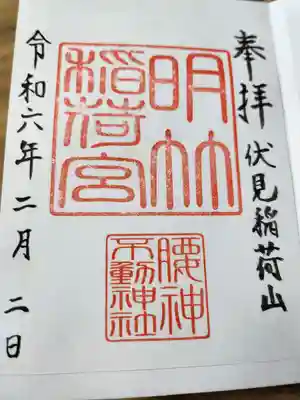 奉拝 伏見稲荷山
明竹
稲荷宮
腰神
不動神社
令和六年 二月 二日